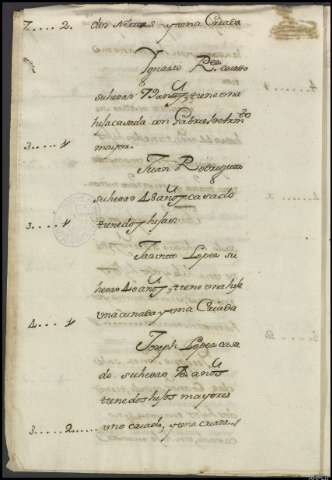 7.... 2. dos nietas y una Criada
Ygnacio Rs casado
suhedad 79 años tiene una
hija casada con Gabriel
mayor.
Juan Rodriguez
suhedad 48 años casado
3... 4 tiene dos hijas
Jacinto Lopez su
hedad 40 años, tiene una hija
4... 4 una cuñada y una Criada
Joseph Lopez casa
do suhedad 72 años
tiene dos hijos mayores
3.... 2..... uno casado, y una